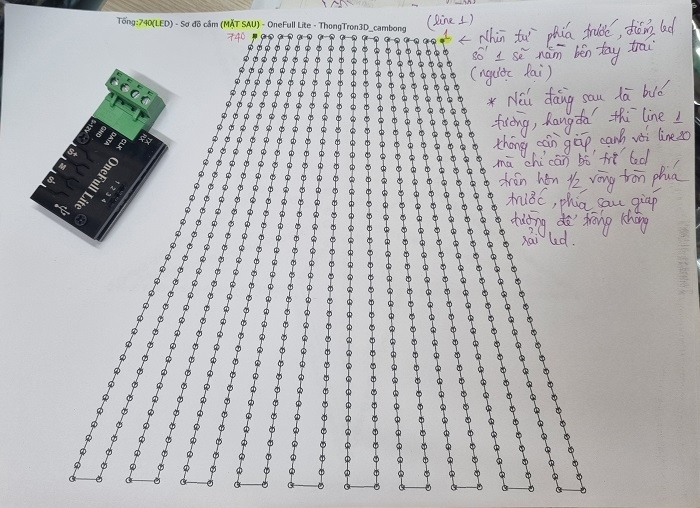 Tổng:740(LED) - Sơ đồ cắm (MẶT SAU) - OneFull Lite - ThongTron3D_cambong
(line 1)
740
1 ← Nhìn từ phía trước, điểm led
số 1 sẽ nằm bên tay trái
(ngược lại)
* Nếu đằng sau là bức
tường, hang đá thì line 1
không cần giáp cạnh với line 20
mà chỉ cần bố trí led
trên hơn 1/2 vòng tròn phía
trước, phía sau giáp
tường để trống không
xài led.
TX
RX
CLK
DATA
GND
5-12V
OneFull Lite
1 2 3 4